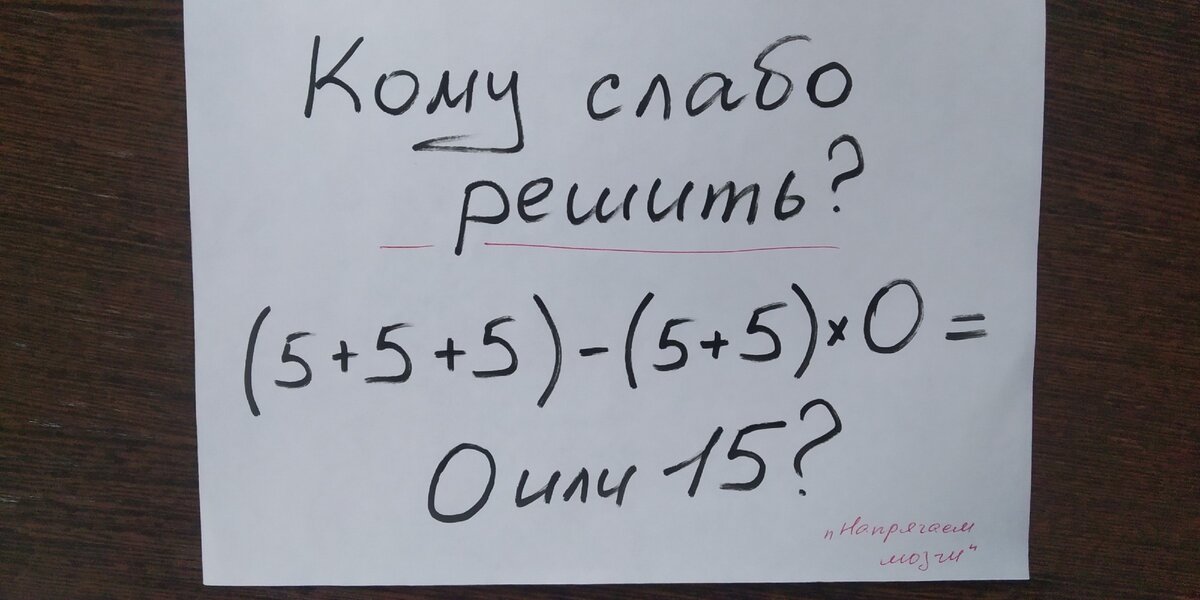 Кому слабо
решить?
(5+5+5)-(5+5)×0=
0 или 15?
"Напрягаем
мозги"